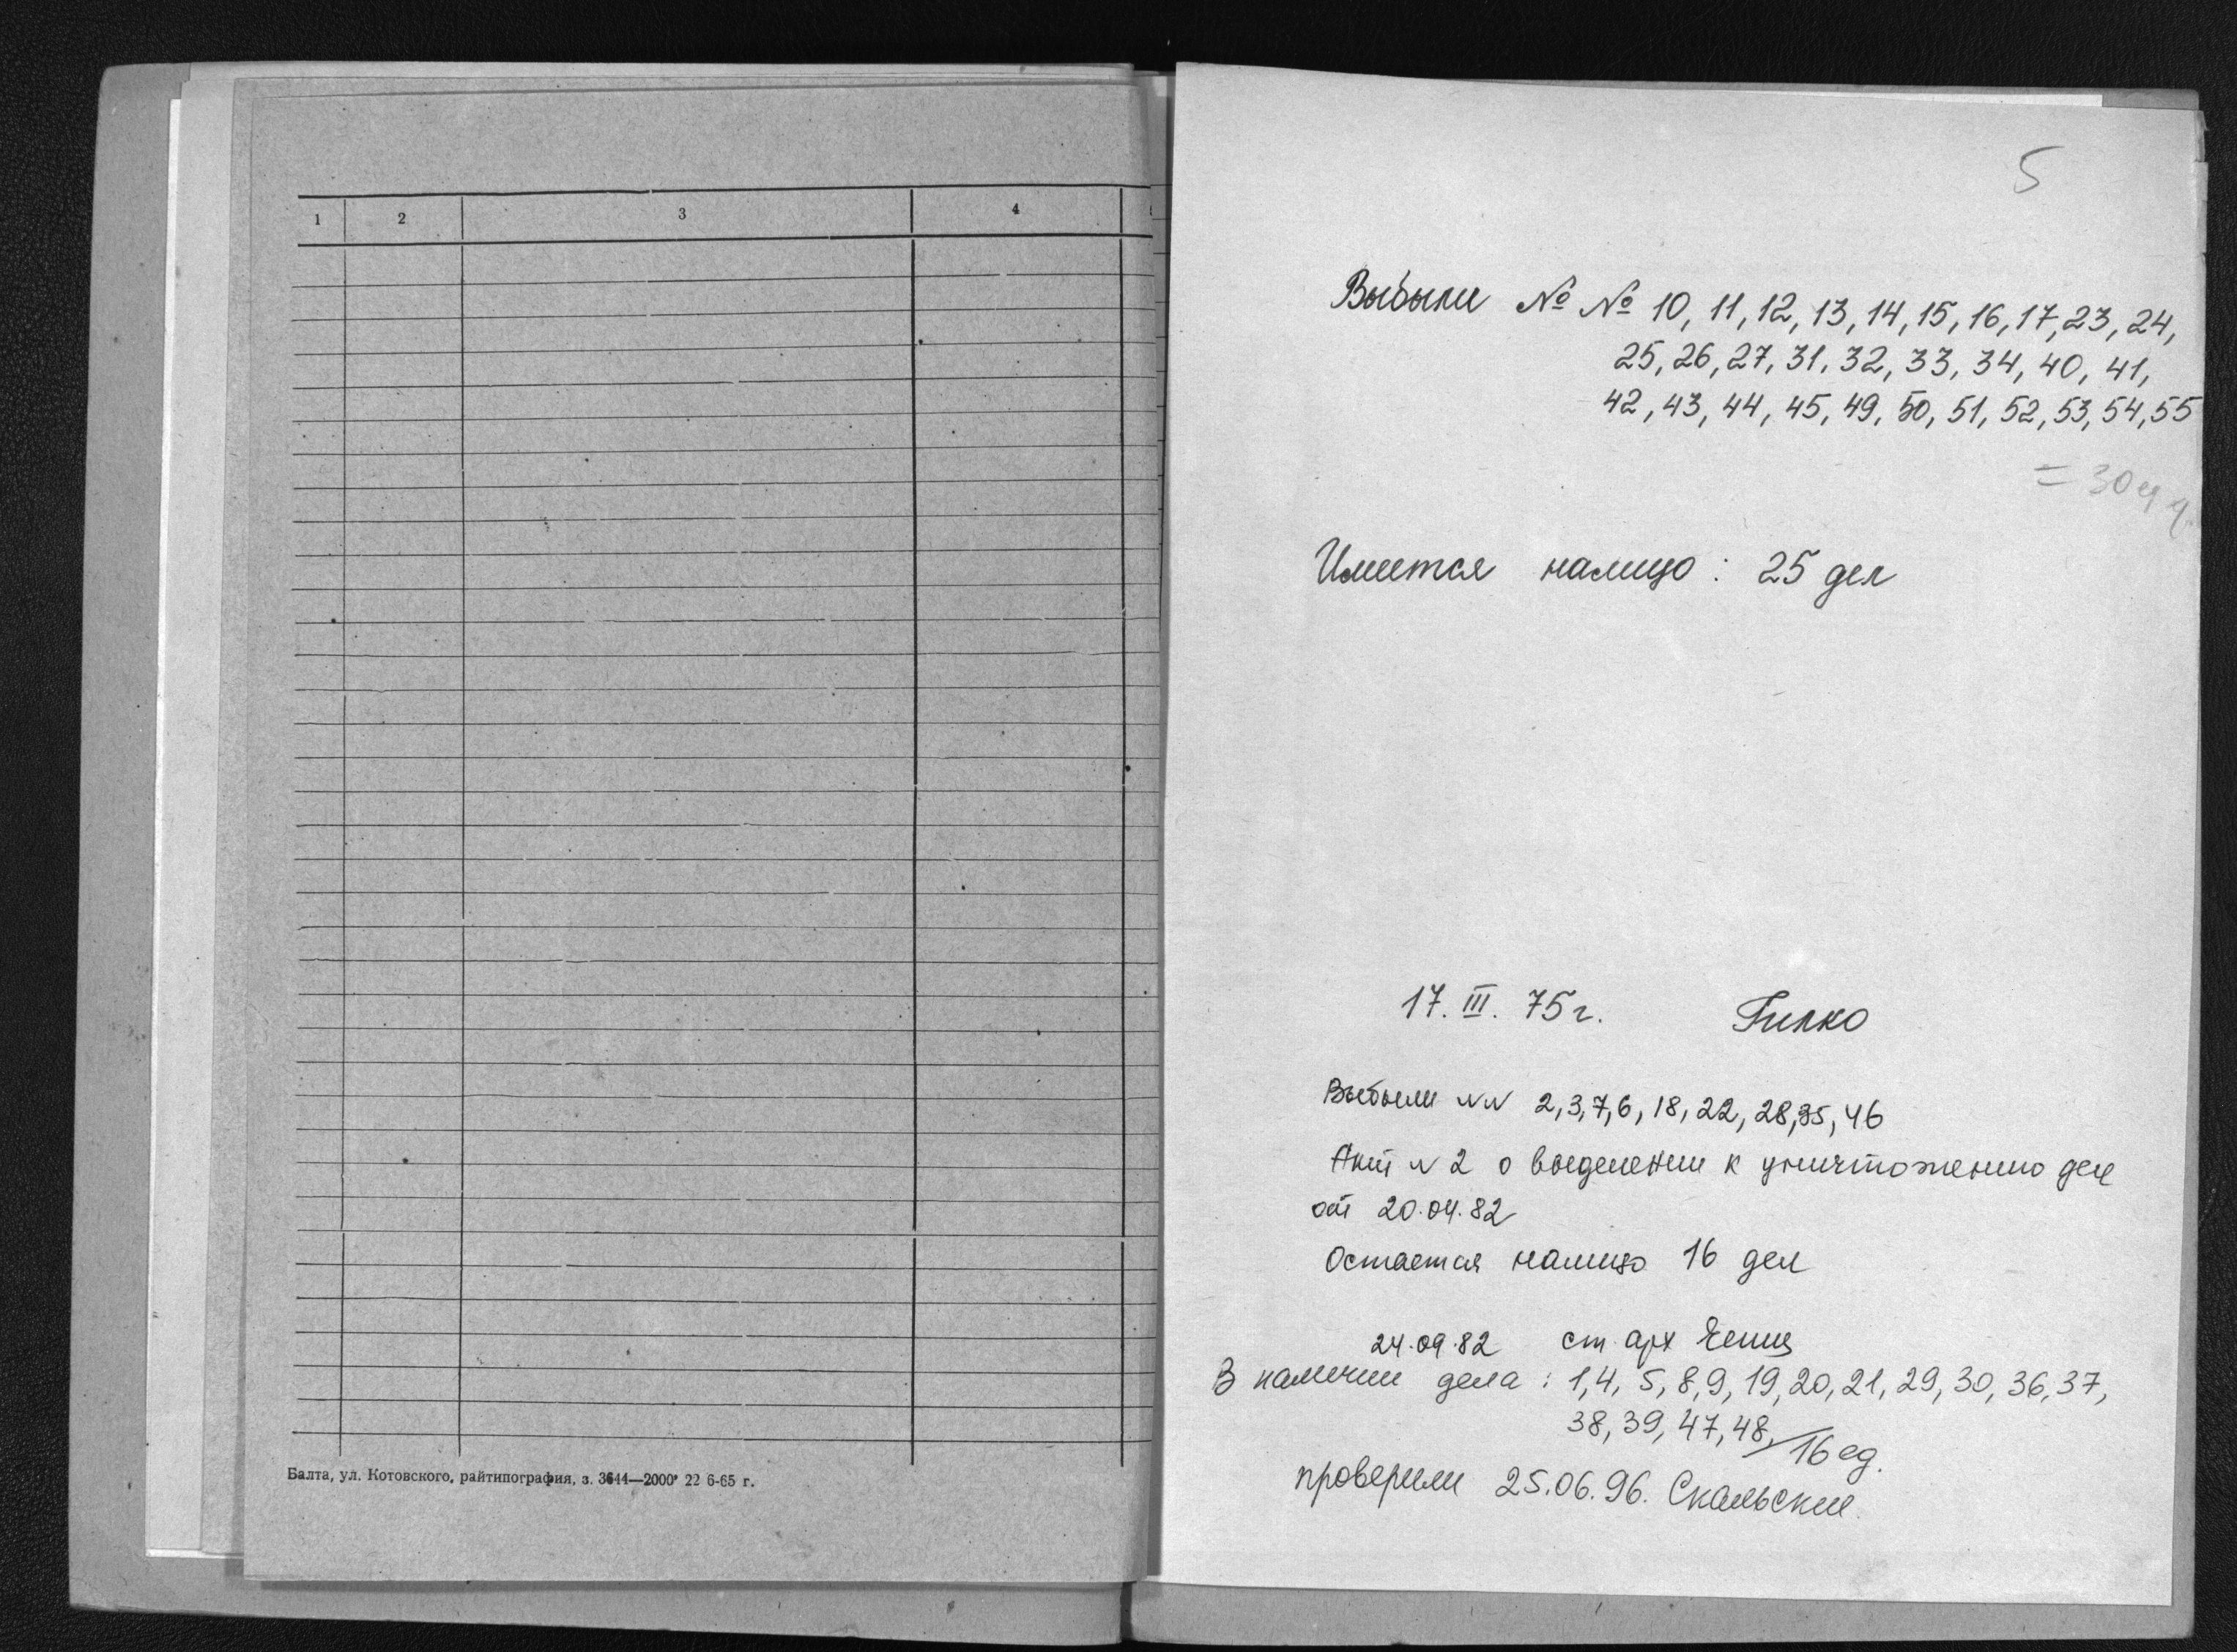 1 2 3 4
Балта, ул. Котовского, райтипография, з. 3644—2000 22 6-65 г.
5
Выбыли №№ 10, 11, 12, 13, 14, 15, 16, 17, 23, 24,
25, 26, 27, 31, 32, 33, 34, 40, 41,
42, 43, 44, 45, 49, 50, 51, 52, 53, 54, 55
= 30
Имеется налицо: 25 дел
17. III. 75 г. Гилко
Выбыли NN 2, 3, 7, 6, 18, 22, 28, 35, 46
Акт N 2 о выделении к уничтожению дел
от 20.04.82
Остается налицо 16 дел
24.09.82 ст. арх
В наличии дела: 1, 4, 5, 8, 9, 19, 20, 21, 29, 30, 36, 37,
38, 39, 47, 48, 16 ед.
проверили 25.06.96. Скальский